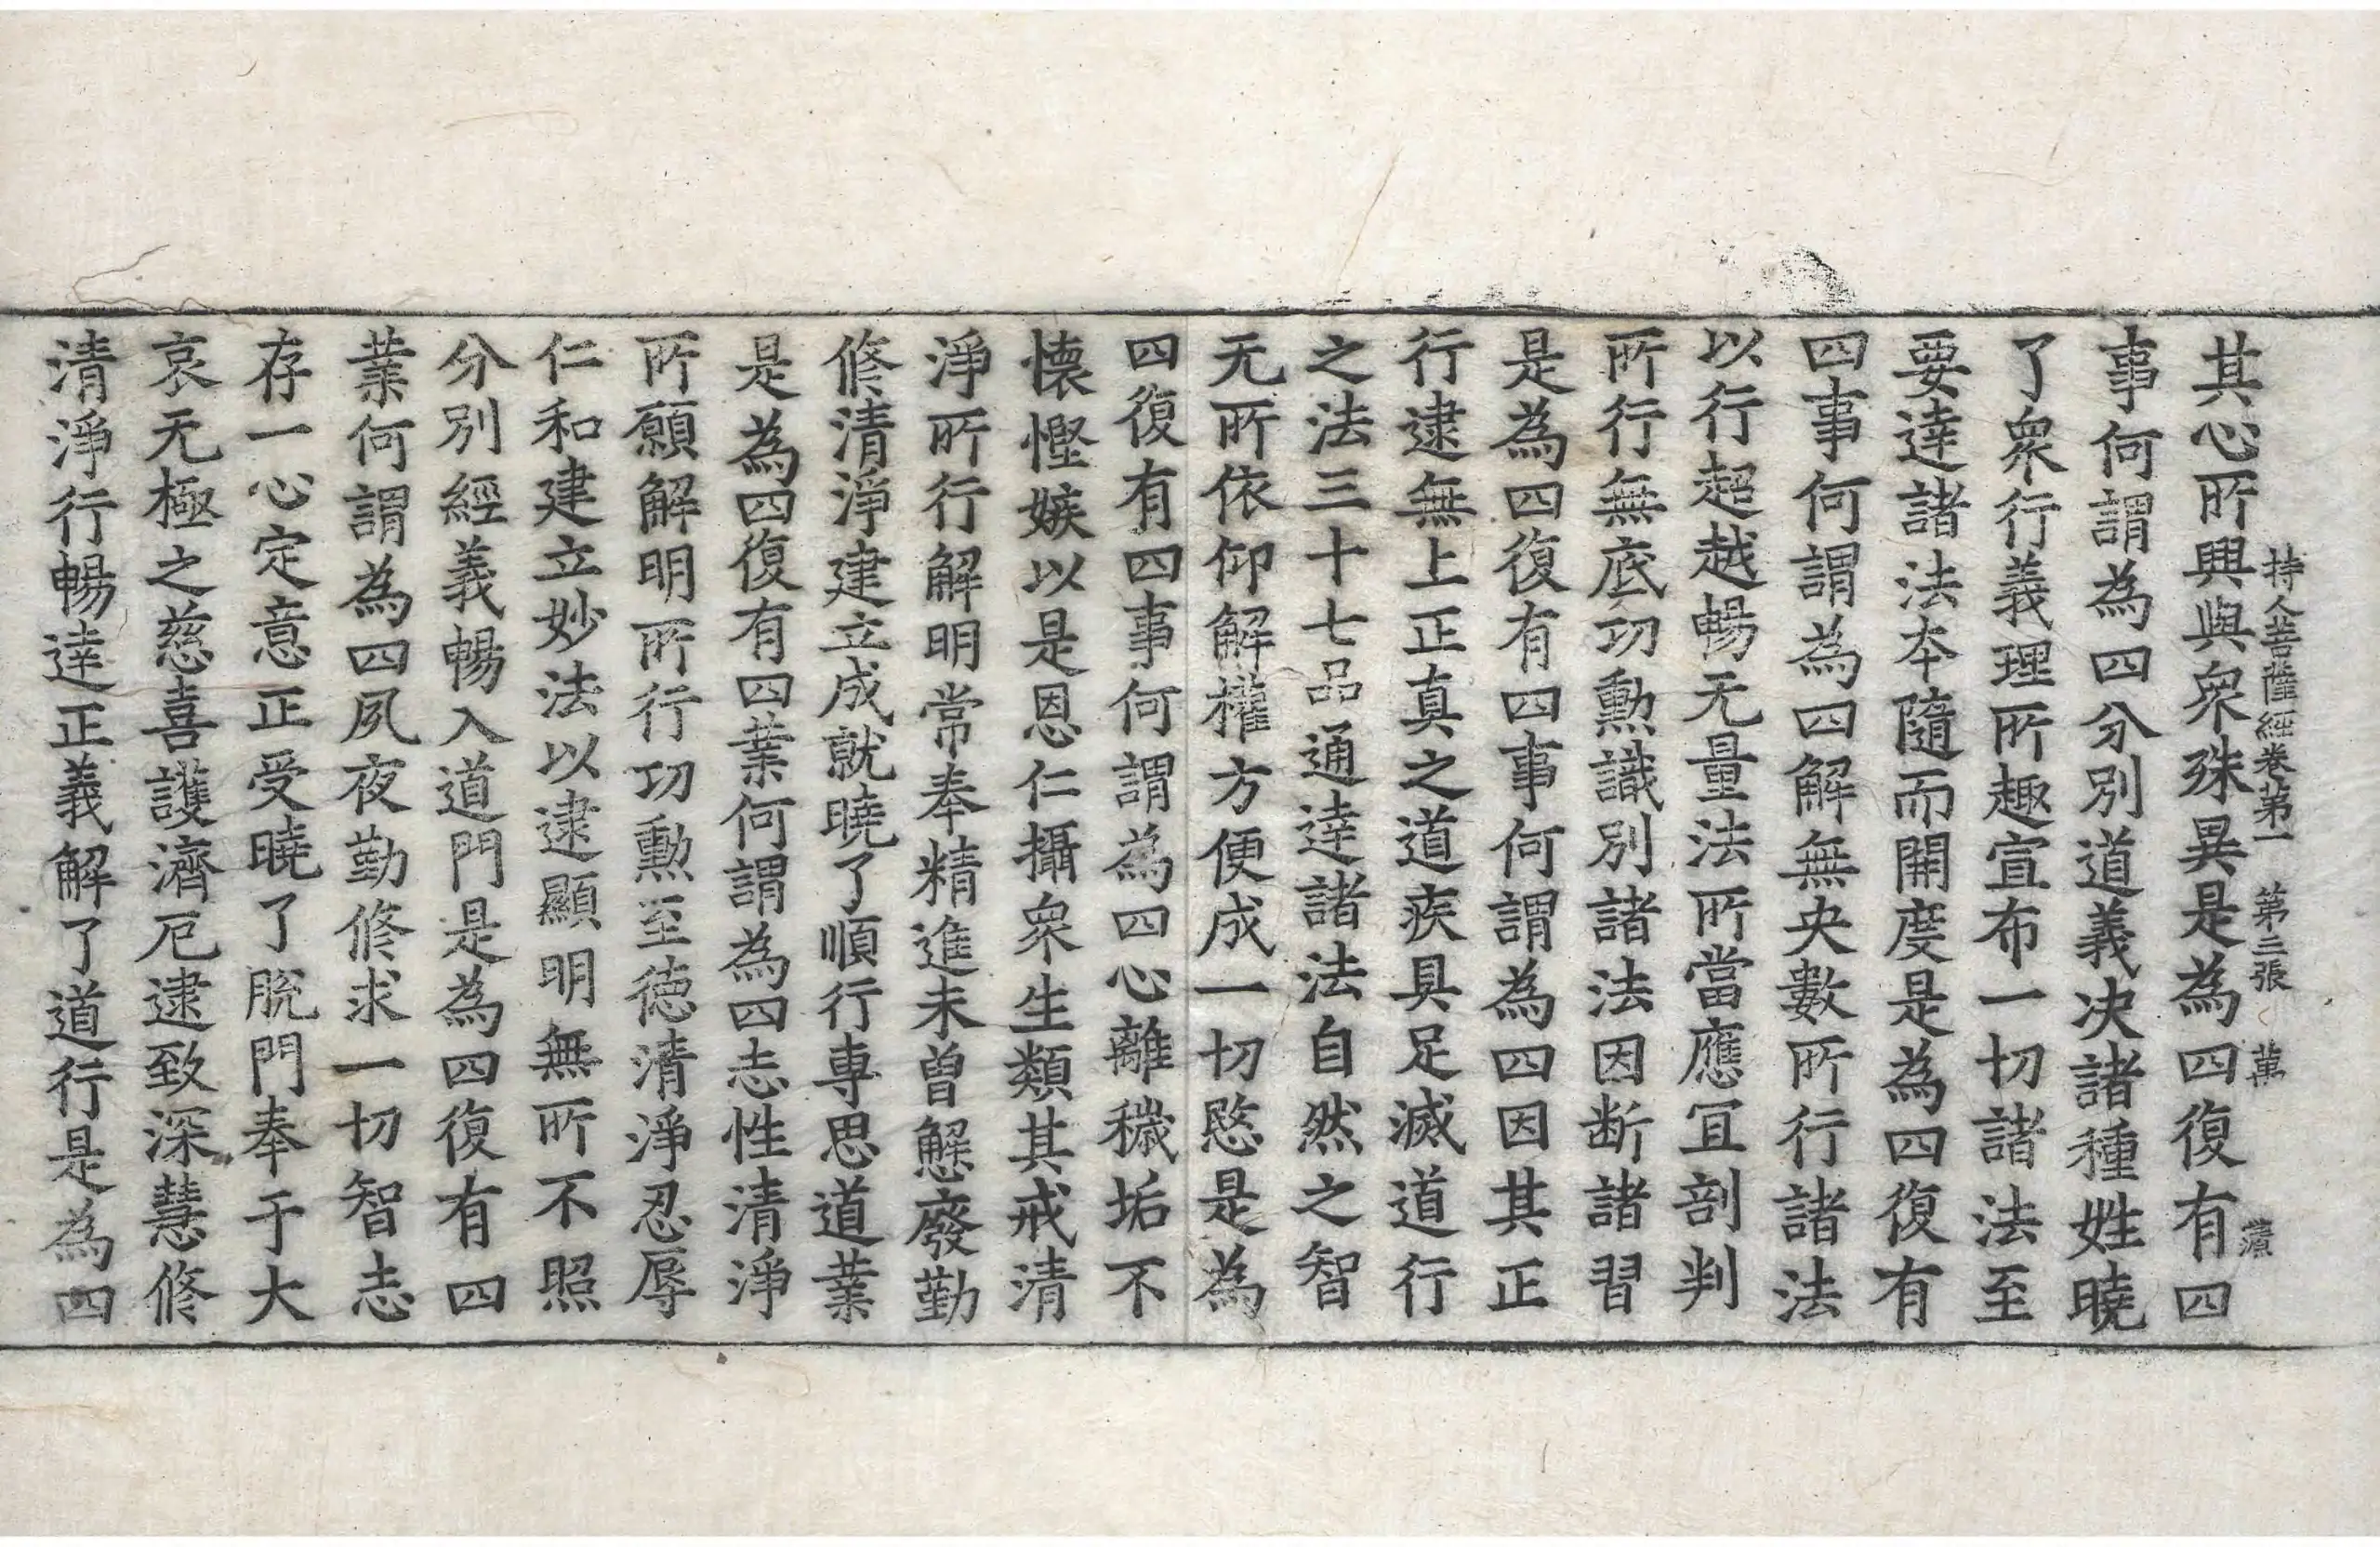 持人菩薩經卷第一 第三張 萬
其心所興與衆殊異是為四復有四
事何謂為四分別道義决諸種姓曉
了衆行義理所趣宣布一切諸法至
要達諸法本隨而開度是為四復有
四事何謂為四解無央數所行諸法
以行超越暢无量法所當應冝剖判
所行無底功勲識別諸法因断諸習
是為四復有四事何謂為四因其正
行逮無上正真之道疾具足滅道行
之法三十七品通達諸法自然之智
无所依仰解權方便成一切慜是為
四復有四事何謂為四心離穢垢不
懐慳嫉以是恩仁攝衆生類其戒清
淨所行解明常奉精進未曽懈廢勤
修清淨建立成就曉了順行專思道業
是為四復有四業何謂為四志性清淨
所願解明所行功勲至徳清淨忍辱
仁和建立妙法以逮顯明無所不照
分別經義暢入道門是為四復有四
業何謂為四夙夜勤修求一切智志
存一心定意正受曉了脫門奉于大
哀无極之慈喜護濟厄逮致深慧修
清淨行暢達正義解了道行是為四